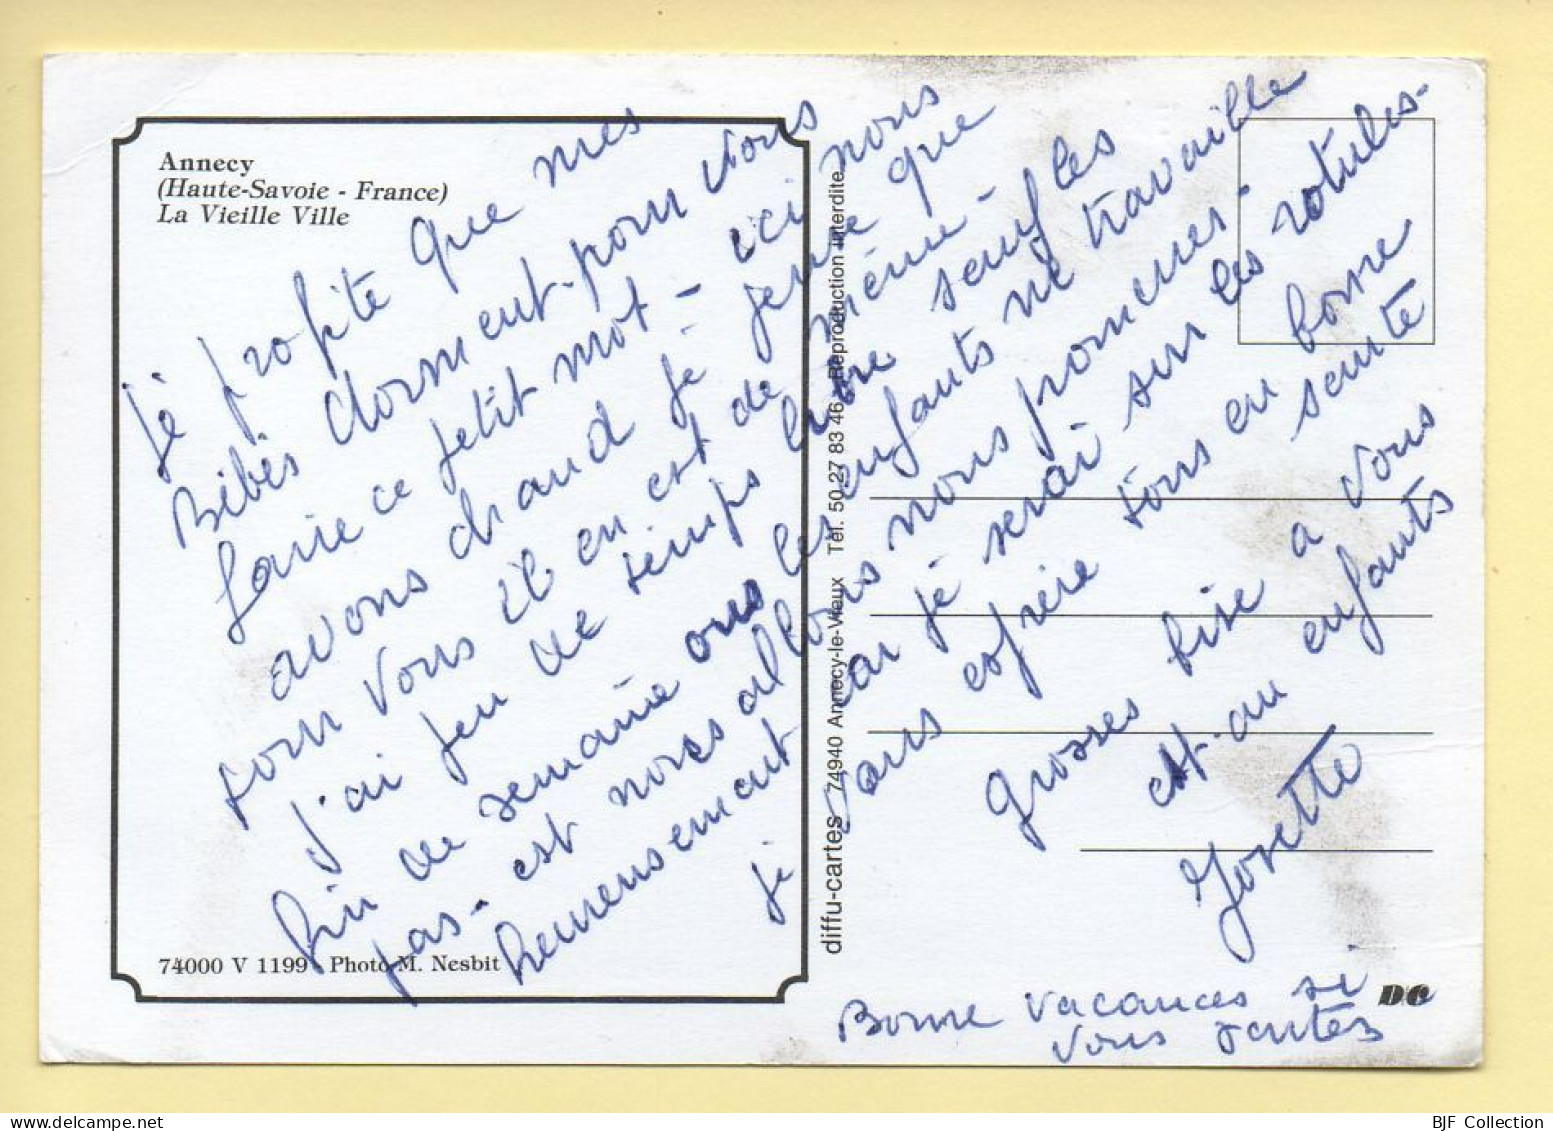 Annecy
(Haute-Savoie - France)
La Vieille Ville
Je profite que mes
Bébés dorment pour vous
faire ce petit mot - ici nous
avons chaud je pense que
pour vous il en est de même -
j'ai peu de temps libre sauf les
fin de semaine ou les enfants ne travaille
pas - est nous allons nous promener -
heureusement car je serai sur les rotules -
je vous espère tous en bonne
santé
Grosses bise a vous
est au enfants
Josette
Bonne vacances si
vous partez
74000 V 1199 Photo M. Nesbit
diffu-cartes 74940 Annecy-le-Vieux Tél. 50 27 83 46 Reproduction interdite
DC
BJF Collection